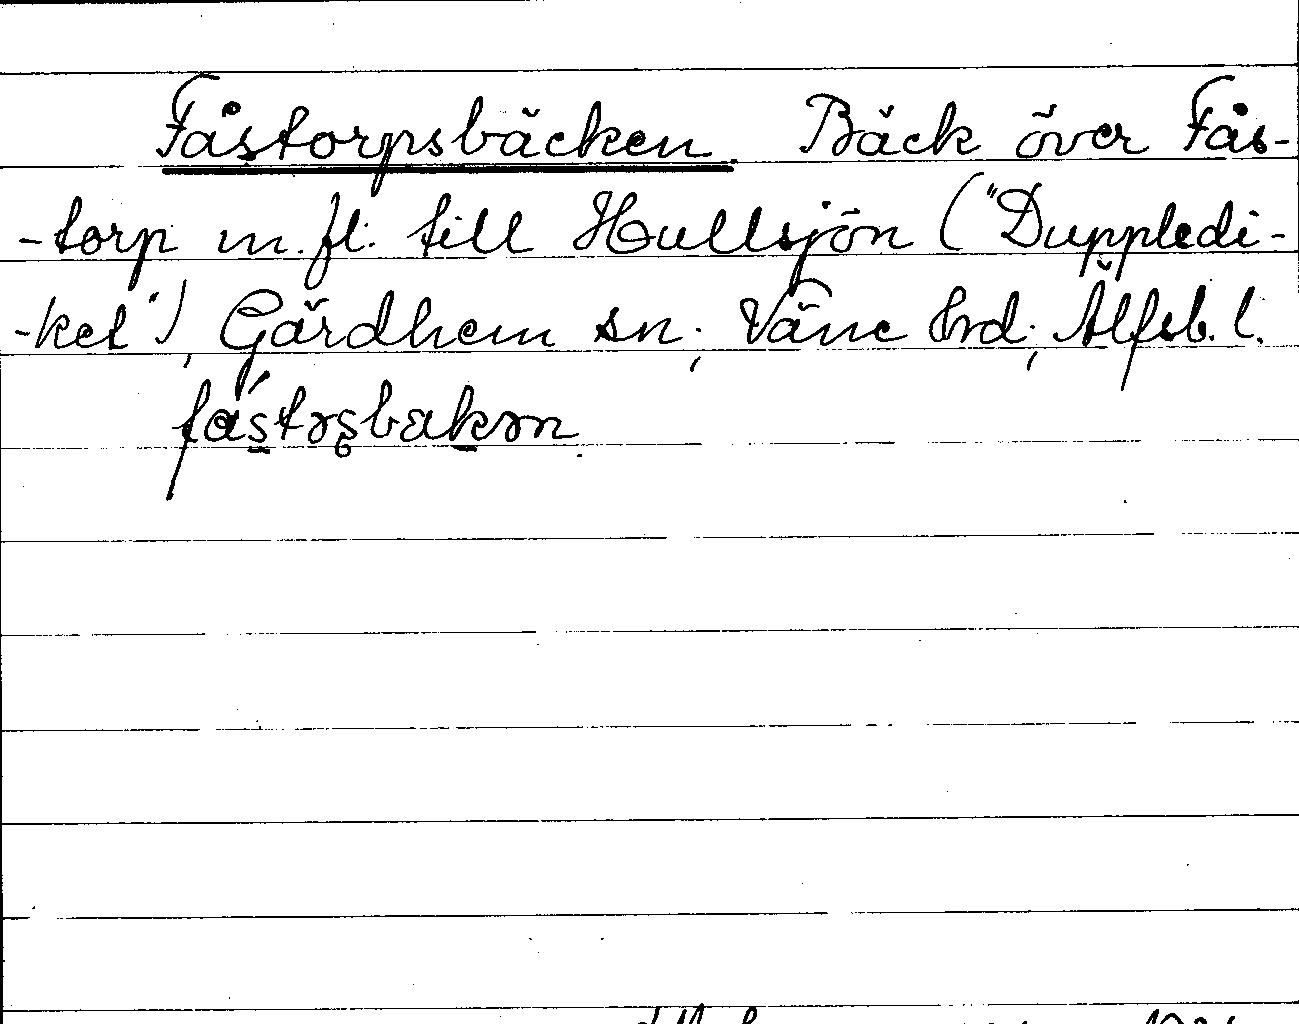 Fåstorpsbäcken. Bäck över Fås-
-torp m.fl. till Hullsjön ("Duppledi-
-ket"), Gärdhem sn; Väne hrd; Älfsb. l.